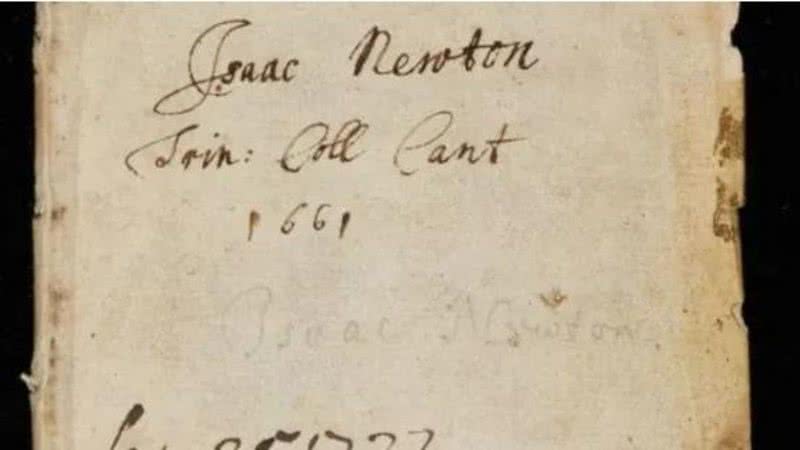 Isaac Newton
Trin: Coll Cant
1661
Isaac Newton